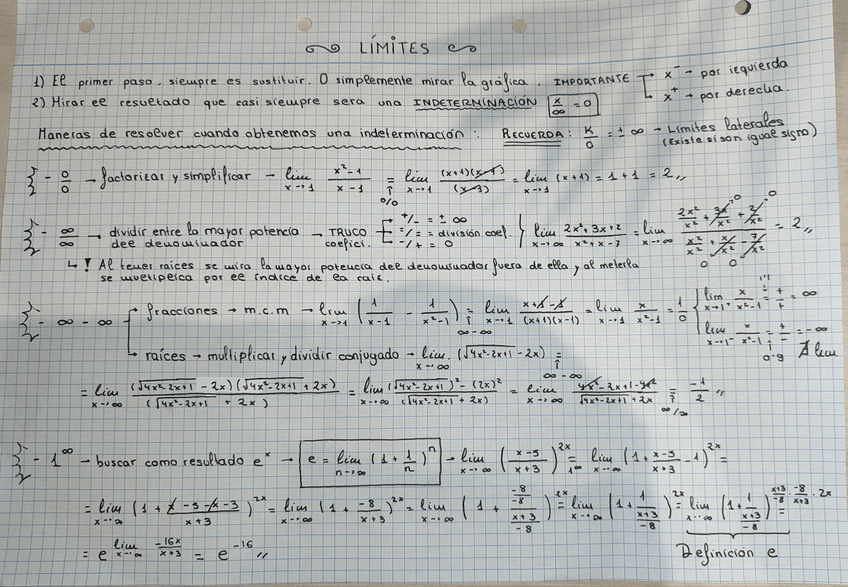 LÍMITES
1) El primer paso siempre es sustituir. O simplemente mirar la gráfica. IMPORTANTE x⁻ → por izquierda
x⁺ → por derecha.
2) Mirar el resultado que casi siempre sera una INDETERMINACIÓN x/∞ = 0
Maneras de resolver cuando obtenemos una indeterminación: RECUERDA: K/0 = ±∞ → Límites laterales
(Existe si son igual signo)
- 0/0 → factorizar y simplificar → lim x→1 (x²-1)/(x-1) = 0/0 lim x→1 (x+1)(x-1)/(x-1) = lim x→1 (x+1) = 1+1 = 2,,
- ∞/∞ → dividir entre la mayor potencia del denominador → TRUCO coefici. +/- = ±∞ =/= = división coef. -/+ = 0
lim x→∞ (2x²+3x+2)/(x²+x-7) = lim x→∞ (2x²/x² + 3x/x² + 2/x²)/(x²/x² + x/x² - 7/x²) = 2,,
↳ ! Al tener raíces se mira la mayor potencia del denominador fuera de ella, y al meterla
se multiplica por el índice de la raíz.
- ∞ - ∞ fracciones → m.c.m → lim x→1 (1/(x-1) - 1/(x²-1)) = ∞-∞ lim x→1 (x+1-1)/((x+1)(x-1)) = lim x→1 x/(x²-1) = 1/0
lim x→1⁺ x/(x²-1) = +/+ = ∞
lim x→1⁻ x/(x²-1) = +/- = -∞
0'9 ∄ lim
raíces → multiplicar y dividir conjugado → lim x→∞ (√(4x²-2x+1) - 2x) = ∞-∞
= lim x→∞ (√(4x²-2x+1) - 2x)(√(4x²-2x+1) + 2x)/(√(4x²-2x+1) + 2x) = lim x→∞ ((√(4x²-2x+1))² - (2x)²)/(√(4x²-2x+1) + 2x) = lim x→∞ (4x²-2x+1-4x²)/(√(4x²-2x+1)+2x) = ∞/∞ -1/2,,
- 1^∞ → buscar como resultado eˣ → e = lim n→∞ (1 + 1/n)ⁿ → lim x→∞ ((x-5)/(x+3))^2x = 1^∞ lim x→∞ (1 + (x-5)/(x+3) - 1)^2x =
= lim x→∞ (1 + (x-5-x-3)/(x+3))^2x = lim x→∞ (1 + -8/(x+3))^2x = lim x→∞ (1 + (-8/-8)/((x+3)/-8))^2x = lim x→∞ (1 + 1/((x+3)/-8))^2x = lim x→∞ (1 + 1/((x+3)/-8))^((x+3)/-8 · -8/(x+3) · 2x) =
= e^(lim x→∞ -16x/(x+3)) = e⁻¹⁶,,
Definición e